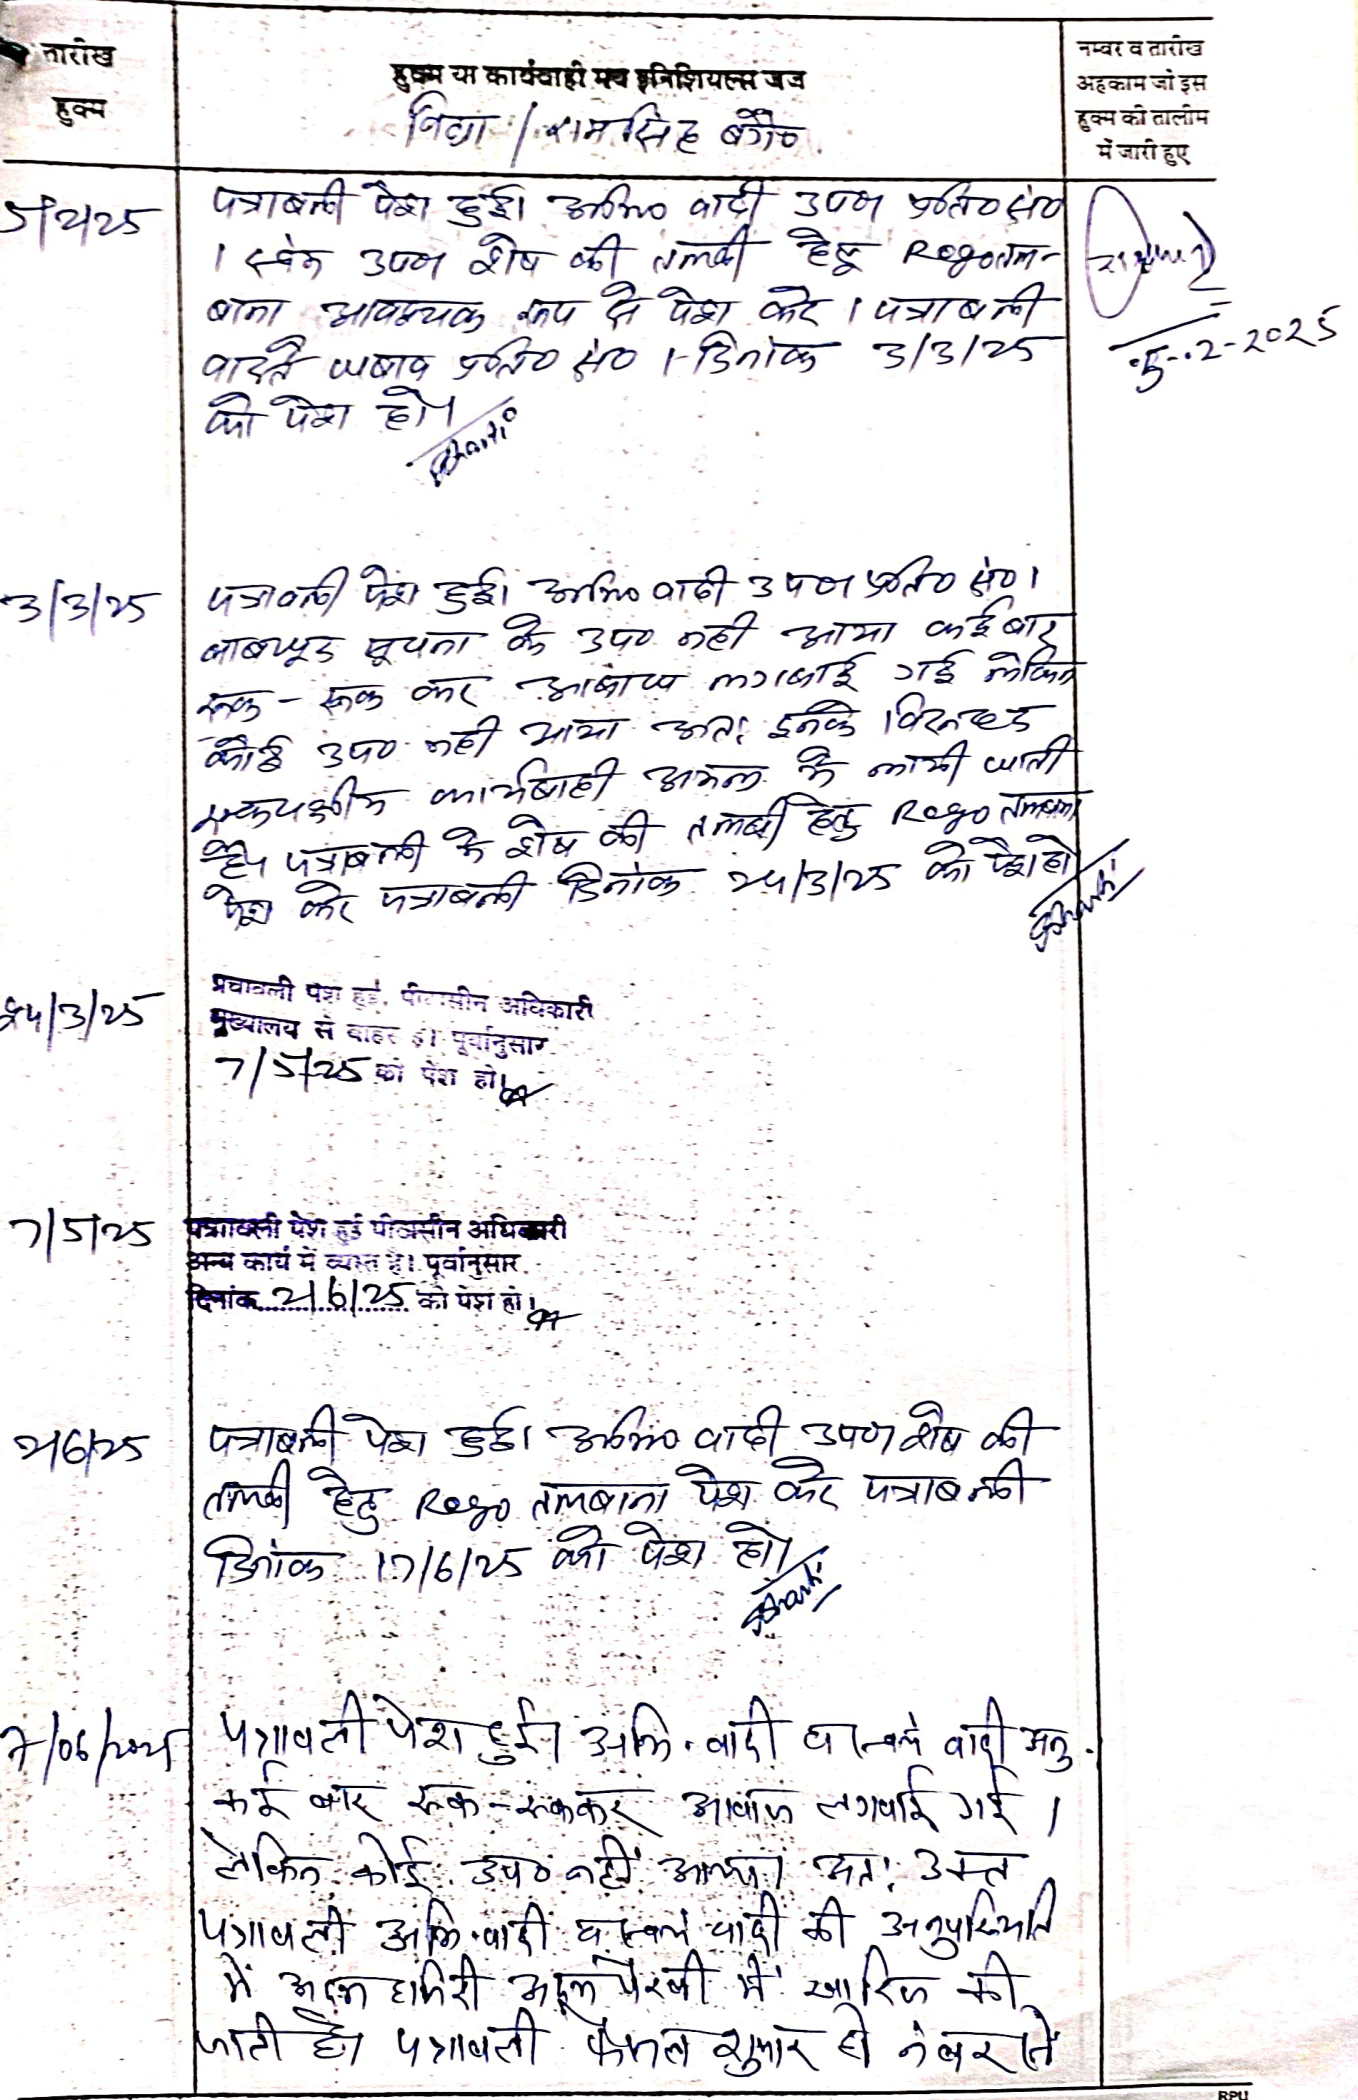 तारीख
हुक्म
हुक्म या कार्यवाही मय इनिशियल्स जज
नम्बर व तारीख
अहकाम जो इस
हुक्म की तालीम
में जारी हुए
/ रामसिंह वगै०
5/2/25
पत्राबली पेश हुई। अभि० वादी उप० प्रति० सं०
1 स्वंय उप० शेष की तलबी हेतु Rego तल-
बाना आवश्यक रूप से पेश करे। पत्राबली
वास्ते जबाव प्रति० सं० 1 दिनांक 3/3/25
को पेश हो।
Bharti
5-2-2025
3/3/25
पत्रावली पेश हुई। अभि० वादी उप० प्रति० सं० 1
बाबजूद सूचना के उप० नही आया कई बार
रूक - रूक कर आबाज लगबाई गई लेकिन
कोई उप० नही आया अतः इनके विरूद्ध
एकपक्षीय कार्यबाही अमल मे लायी जाती
है। पत्राबली मे शेष की तलबी हेतु Rego तलबाना
पेश करे पत्राबली दिनांक 24/3/25 को पेश हो
24/3/25
पत्रावली पेश हुई. पीठासीन अधिकारी
मुख्यालय से बाहर है। पूर्वानुसार
7/5/25 को पेश हो।
7/5/25
पत्रावली पेश हुई पीठासीन अधिकारी
अन्य कार्य में व्यस्त है। पूर्वानुसार
दिनांक 2/6/25 को पेश हो।
2/6/25
पत्राबली पेश हुई। अभि० वादी उप० शेष की
तलबी हेतु Rego तलबाना पेश करे पत्राबली
दिनांक 17/6/25 को पेश हो।
Bharti
/06/2025
पत्रावली पेश हुई। अभि. वादी व स्वयं वादी अनु.
कई बार रूक-रूककर आवाज लगवाई गई।
लेकिन कोई उप० नहीं आया। अतः उक्त
पत्रावली अभि. वादी व स्वयं वादी की अनुपस्थिति
में अदम हाजिरी अदम पैरवी में खारिज की
जाती है। पत्रावली फैसल शुमार हो नंबर से
RPU